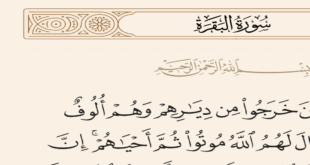 سُورَةُ البَقَرَةِ
بِسْمِ ٱللَّهِ ٱلرَّحْمَٰنِ ٱلرَّحِيمِ
خَرَجُوا۟ مِن دِيَٰرِهِمْ وَهُمْ أُلُوفٌ
لَهُمُ ٱللَّهُ مُوتُوا۟ ثُمَّ أَحْيَٰهُمْ ۚ إِنَّ